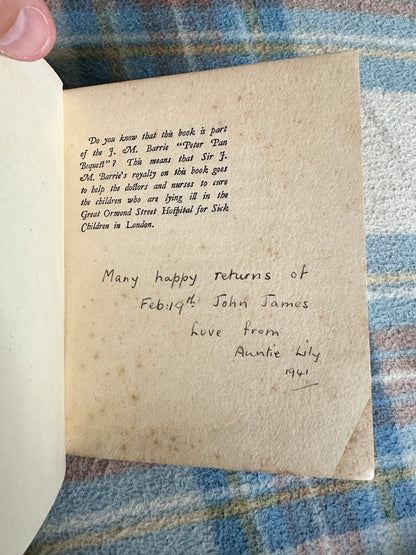 Do you know that this book is part
of the J. M. Barrie "Peter Pan
Bequest"? This means that Sir J.
M. Barrie's royalty on this book goes
to help the doctors and nurses to cure
the children who are lying ill in the
Great Ormond Street Hospital for Sick
Children in London.
Many happy returns of
Feb: 19th John James
Love from
Auntie Lily
1941